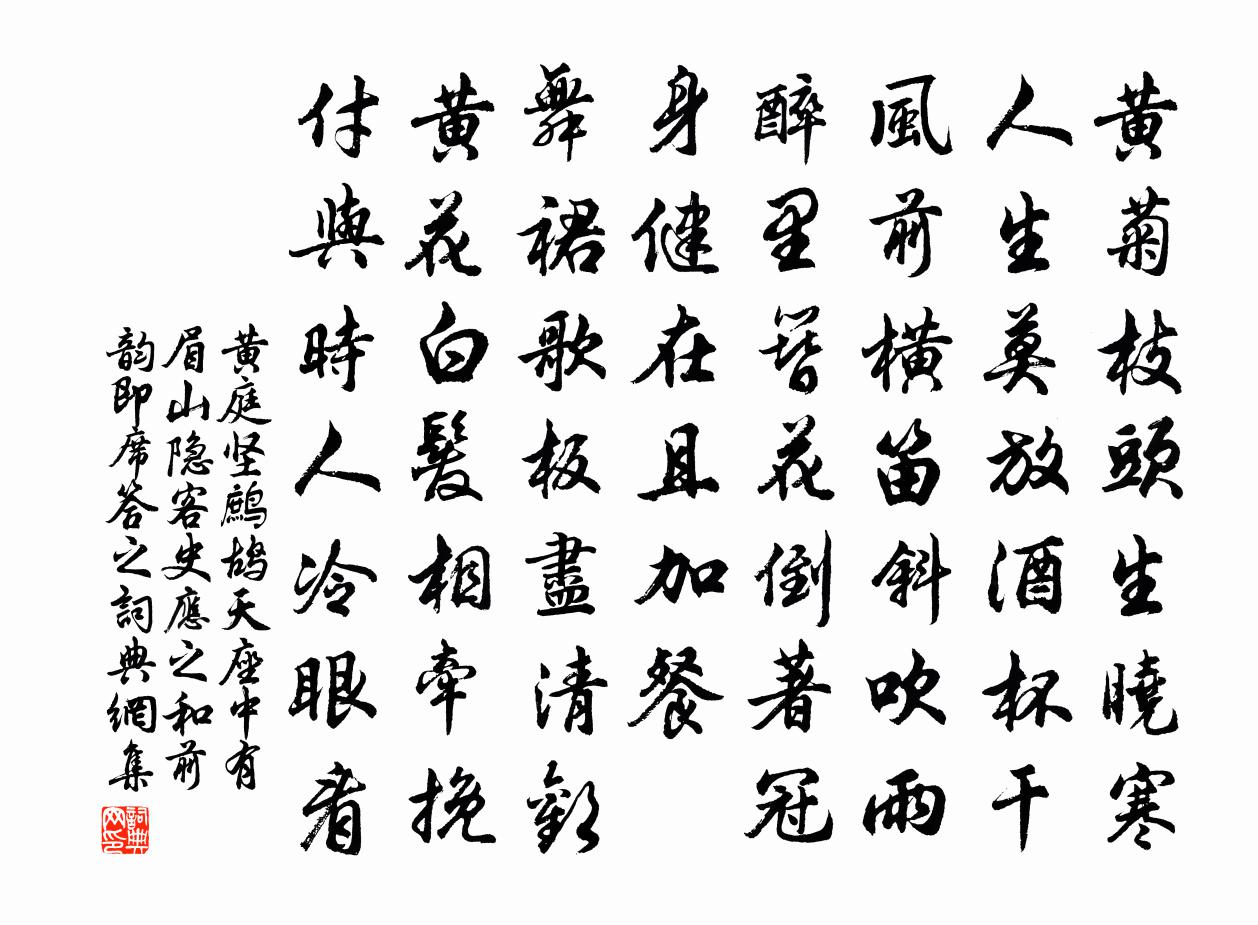 黄菊枝頭生曉寒
人生莫放酒杯干
風前橫笛斜吹雨
醉里簪花倒著冠
身健在且加餐
舞裙歌板盡清歡
黄花白髮相牽挽
付與時人冷眼看
黄庭坚鷓鴣天座中有
眉山隐客史應之和前
韵即席答之詞典網集
詞典网印